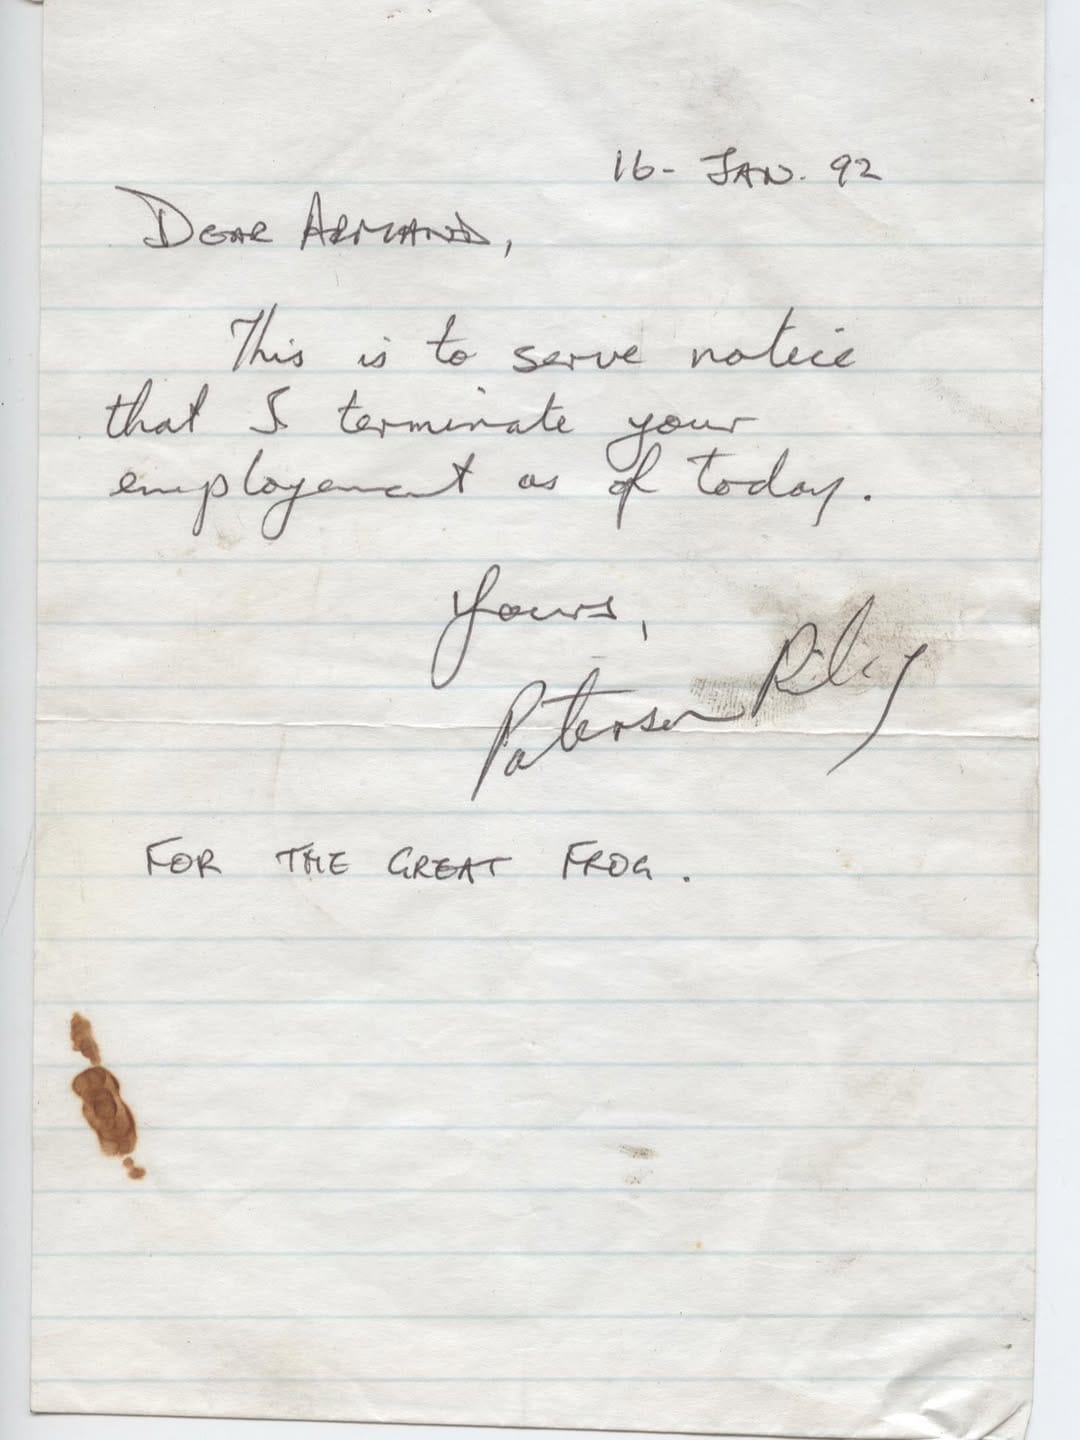 16- JAN. 92
DEAR ARMAND,
This is to serve notice
that I terminate your
employement as of today.
Yours,
Paterson Riley
FOR THE GREAT FROG.